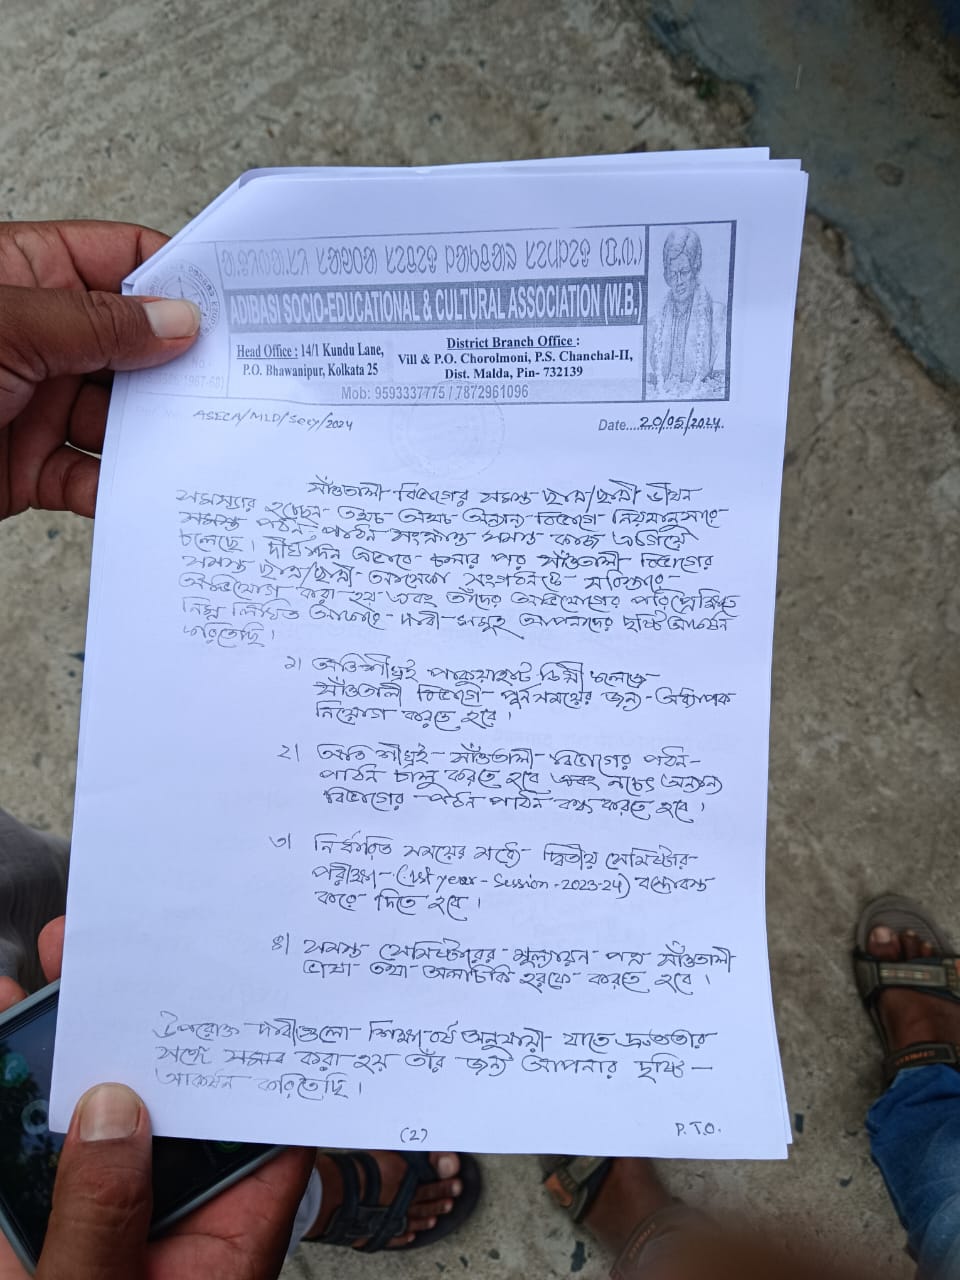 ADIBASI SOCIO-EDUCATIONAL & CULTURAL ASSOCIATION (W.B.)
Head Office : 14/1 Kundu Lane,
P.O. Bhawanipur, Kolkata 25
District Branch Office :
Vill & P.O. Chorolmoni, P.S. Chanchal-II,
Dist. Malda, Pin- 732139
Mob: 9593337775 / 7872961096
ASECA/MLD/Secy/2024
Date....20/05/2024.
সাঁওতালী বিভাগের সমস্ত ছাত্র/ছাত্রী ভীষন
সমস্যার হচ্ছেন অথচ অন্যান্য বিভাগে নিয়মানুসারে
সমস্ত পঠন পাঠন সংক্রান্ত সমস্ত কাজ এগিয়ে
চলেছে। দীর্ঘদিন এভাবে চলার পর সাঁওতালী বিভাগের
সমস্ত ছাত্র/ছাত্রী আসেকা সংগঠনটি
অভিযোগ করা হয় এবং তাঁদের অভিযোগের পরিপ্রেক্ষিতে
নিম্ন লিখিত আকারে দাবী সমূহ আপনাদের দৃষ্টি আকর্ষন
করিতেছি।
১) অতি শীঘ্রই পাকুয়াহাট ডিগ্রী কলেজে
সাঁওতালী বিভাগে পূর্নসময়ের জন্য অধ্যাপক
নিয়োগ করতে হবে।
২) অতি শীঘ্রই সাঁওতালী বিভাগের পঠন-
পাঠন চালু করতে হবে এবং নচেৎ অন্যান্য
বিভাগের পঠন পাঠন বন্ধ করতে হবে।
৩) নির্ধারিত সময়ের মধ্যে দ্বিতীয় সেমিষ্টার
পরীক্ষা (1st year - Session - 2023-24) বন্দোবস্ত
করে দিতে হবে।
৪) সমস্ত সেমিষ্টারের মূল্যায়ন পত্র সাঁওতালী
ভাষা তথা অলচিকি হরফে করতে হবে।
উপরোক্ত দাবীগুলো শিক্ষাবর্ষ অনুযায়ী যাতে দ্রুততার
সঙ্গে সমাধান করা হয় তাঁর জন্য আপনার দৃষ্টি
আকর্ষন করিতেছি।
(2)
P.T.O.